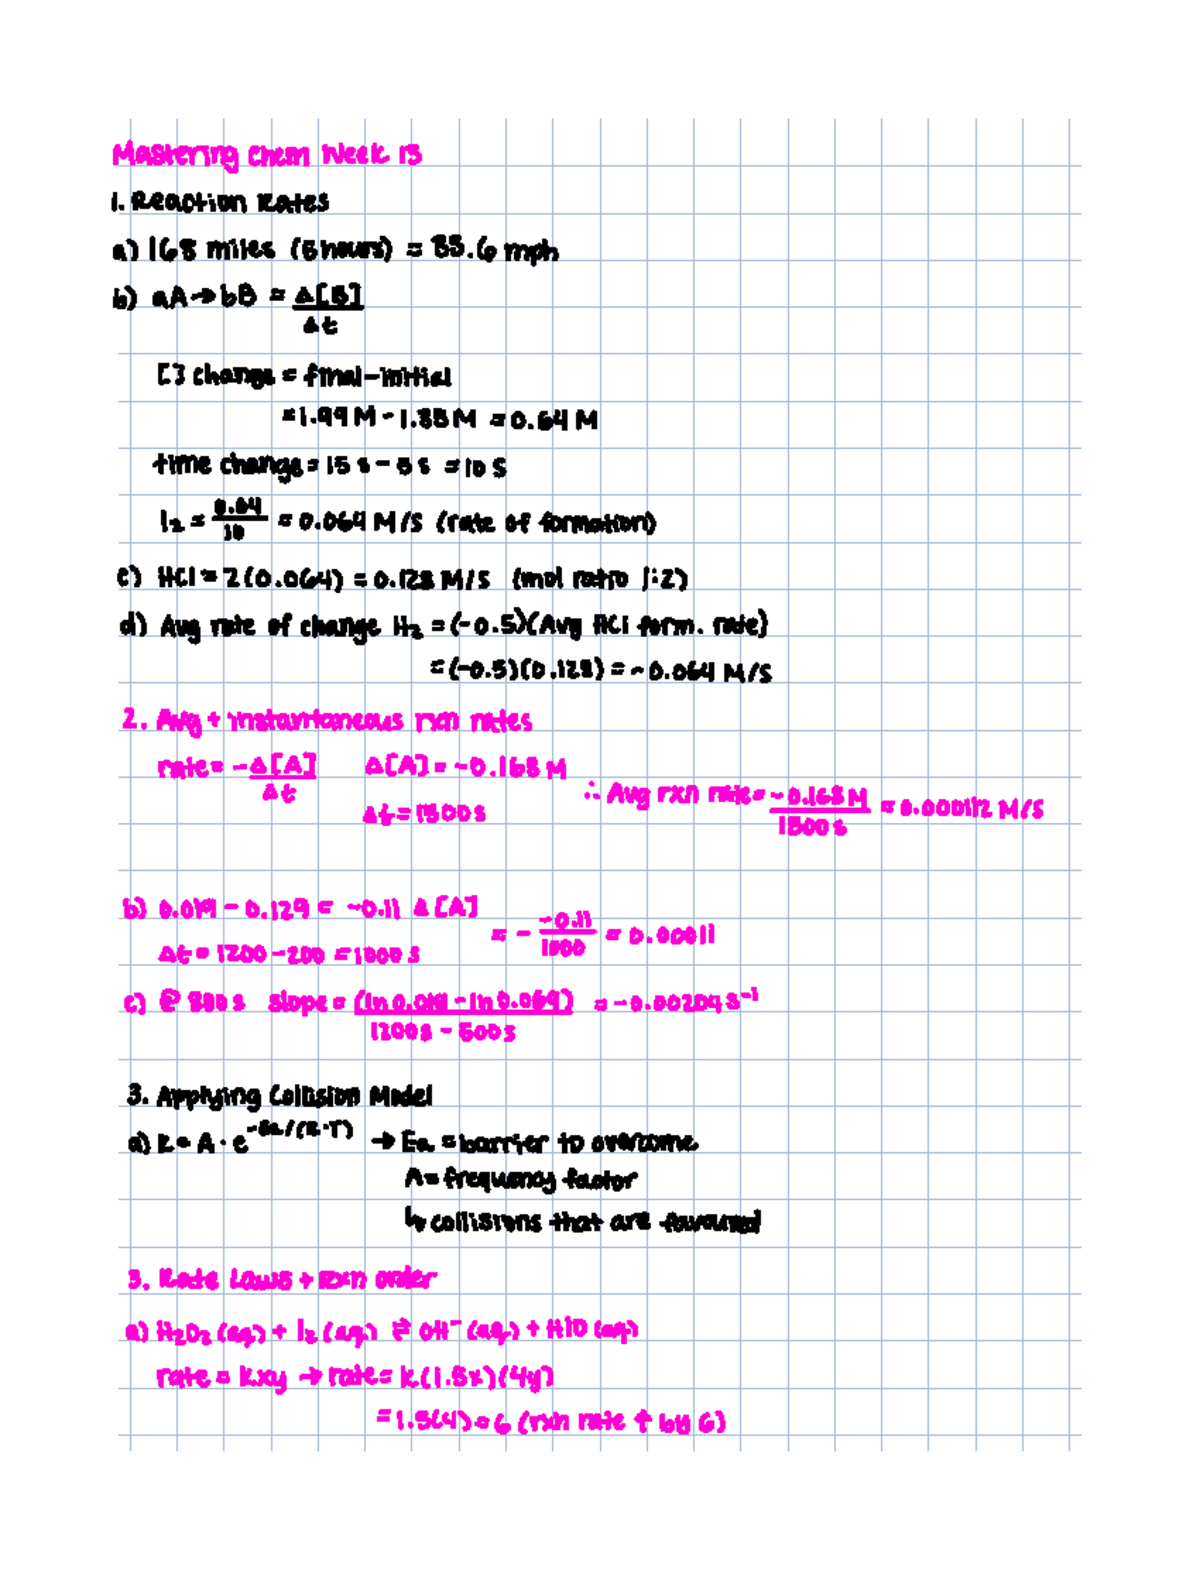 Mastering Chem Week 13
1. Reaction Rates
a) 168 miles (5 hours) = 33.6 mph
b) aA → bB = Δ[B] / Δt
[] change = final - initial
= 1.99 M - 1.35 M = 0.64 M
time change = 15 s - 5 s = 10 s
I₂ = 0.64 / 10 = 0.064 M/S (rate of formation)
c) HCl = 2(0.064) = 0.128 M/S (mol ratio 1:2)
d) Avg rate of change H₂ = (-0.5)(Avg HCl form. rate)
= (-0.5)(0.128) = -0.064 M/S
2. Avg + instantaneous rxn rates
rate = - Δ[A] / Δt Δ[A] = -0.168 M
Δt = 1500 s
∴ Avg rxn rate = -0.168 M / 1500 s = 0.000112 M/S
b) 0.019 - 0.129 = -0.11 Δ[A]
Δt = 1200 - 200 = 1000 s
= - -0.11 / 1000 = 0.00011
c) @ 800 s slope = (ln 0.019 - ln 0.069) / 1200 s - 500 s = -0.00204 s⁻¹
3. Applying Collision Model
a) k = A · e^-Ea/(R·T) → Ea = barrier to overcome
A = frequency factor
↳ collisions that are favoured
3. Rate Laws + Rxn order
a) H₂O₂ (aq) + I₂ (aq) ⇌ OH⁻ (aq) + HIO (aq)
rate = kxy → rate = k(1.5x)(4y)
= 1.5(4) = 6 (rxn rate ↑ by 6)